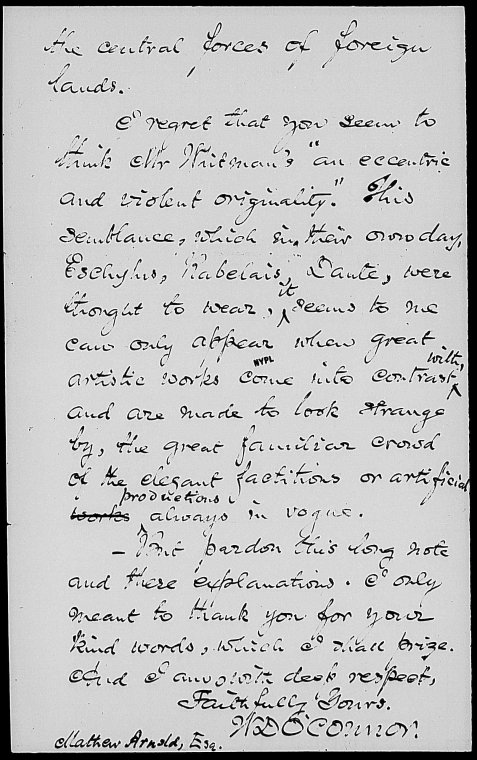 the central forces of foreign
lands.
I regret that you seem to
think Mr Whitman's "an eccentric
and violent originality." This
semblance, which in their own day,
Eschylus, Rabelais, Dante, were
thought to wear, it seems to me
can only appear when great
NYPL
artistic works come into contrast with,
and are made to look strange
by, the great familiar crowd
of the elegant factitious or artificial
works productions always in vogue.
— But pardon this long note
and these explanations. I only
meant to thank you for your
kind words, which I shall prize.
And I am, with deep respect,
Faithfully Yours.
W D O'Connor.
Mathew Arnold, Esq.